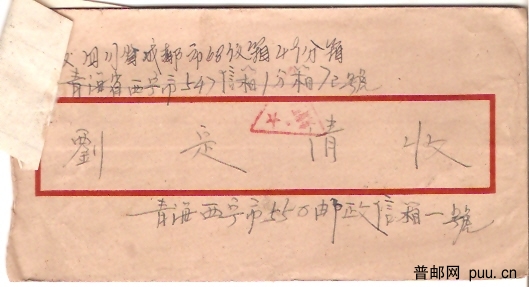 四川省成都市68信箱49分箱
青海省西宁市547信箱1分箱7号
劉定清收
青海西宁市550邮政信箱一號
普邮网 puu.cn